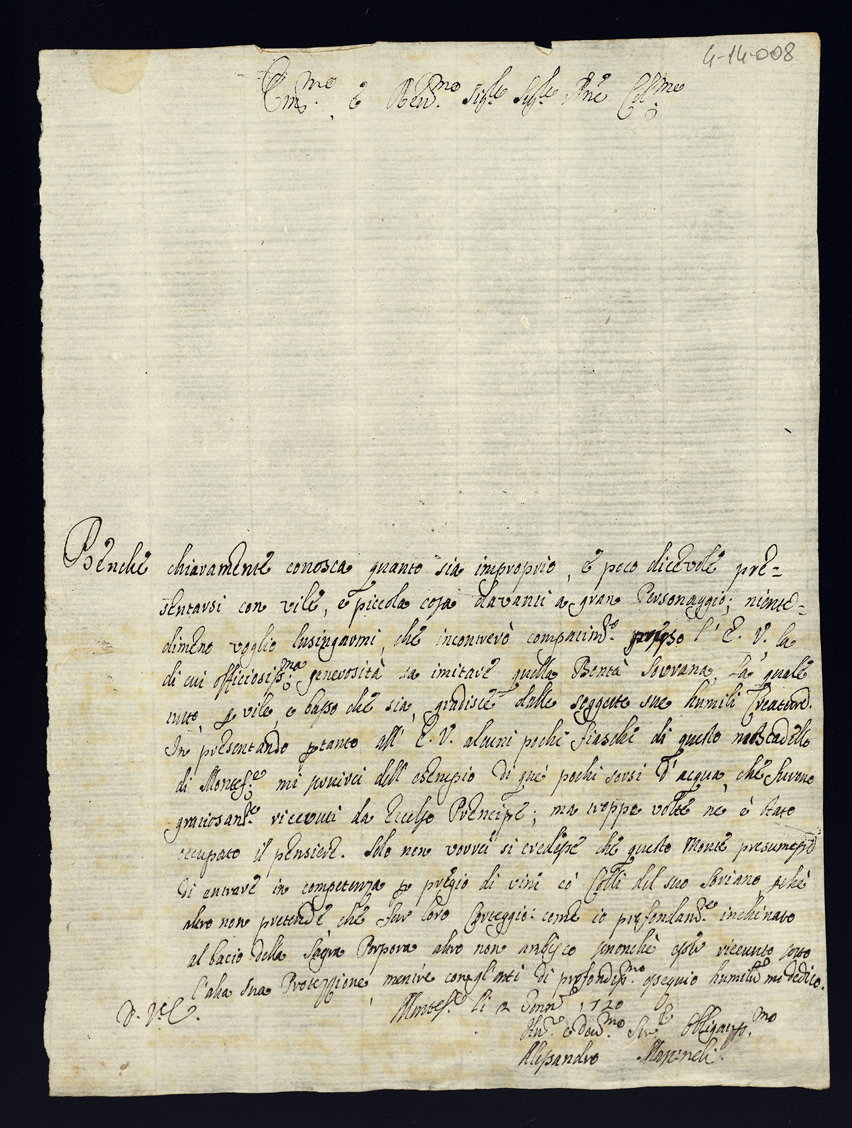 4-14-008
Em.mo e Rev.mo Sig.re Sig.re Pne Col.mo
Benche chiaramente conosca quanto sia improprio, e poco dicevole pre=
sentarsi con vile, e piccola cosa davanti a gran Personaggio; niente=
dimeno voglio lusingarmi, che incontrerò compatim.to presso l'E. V., la
di cui officiosiss.ma generosità sa imitare quella Bontà Sovrana, la quale
tutto, p vile, e basso che sia, gradisce dalle soggette sue humili Creature.
In presentando ptanto all'E. V. alcuni pochi fiaschi di questo moscadello
di Montef.e mi servirei dell'esempio di que pochi sorsi d'acqua che furono
graziosam.te ricevuti da Eccelso Prencipe; ma troppe volte ne è stato
occupato il pensiere. Solo non vorrei si credesse che questo Monte presumesse
di entrare in competenza p pregio di vini co' Colli del suo Soriano, pche
altro non pretende che far loro Corteggio: come io profondam.e inchinato
al bacio della Sagra Porpora altro non ambisco senonche esser ricevuto sotto
l'alta sua Protezzione, mentre con gl'atti di profondiss.mo ossequio humilm.e mi dedico.
D. V. E. Montef.e li 2 Genn.o 1720
Hu.mo e dev.mo Ser.re Obligatiss.mo
Alessandro Mazzineli